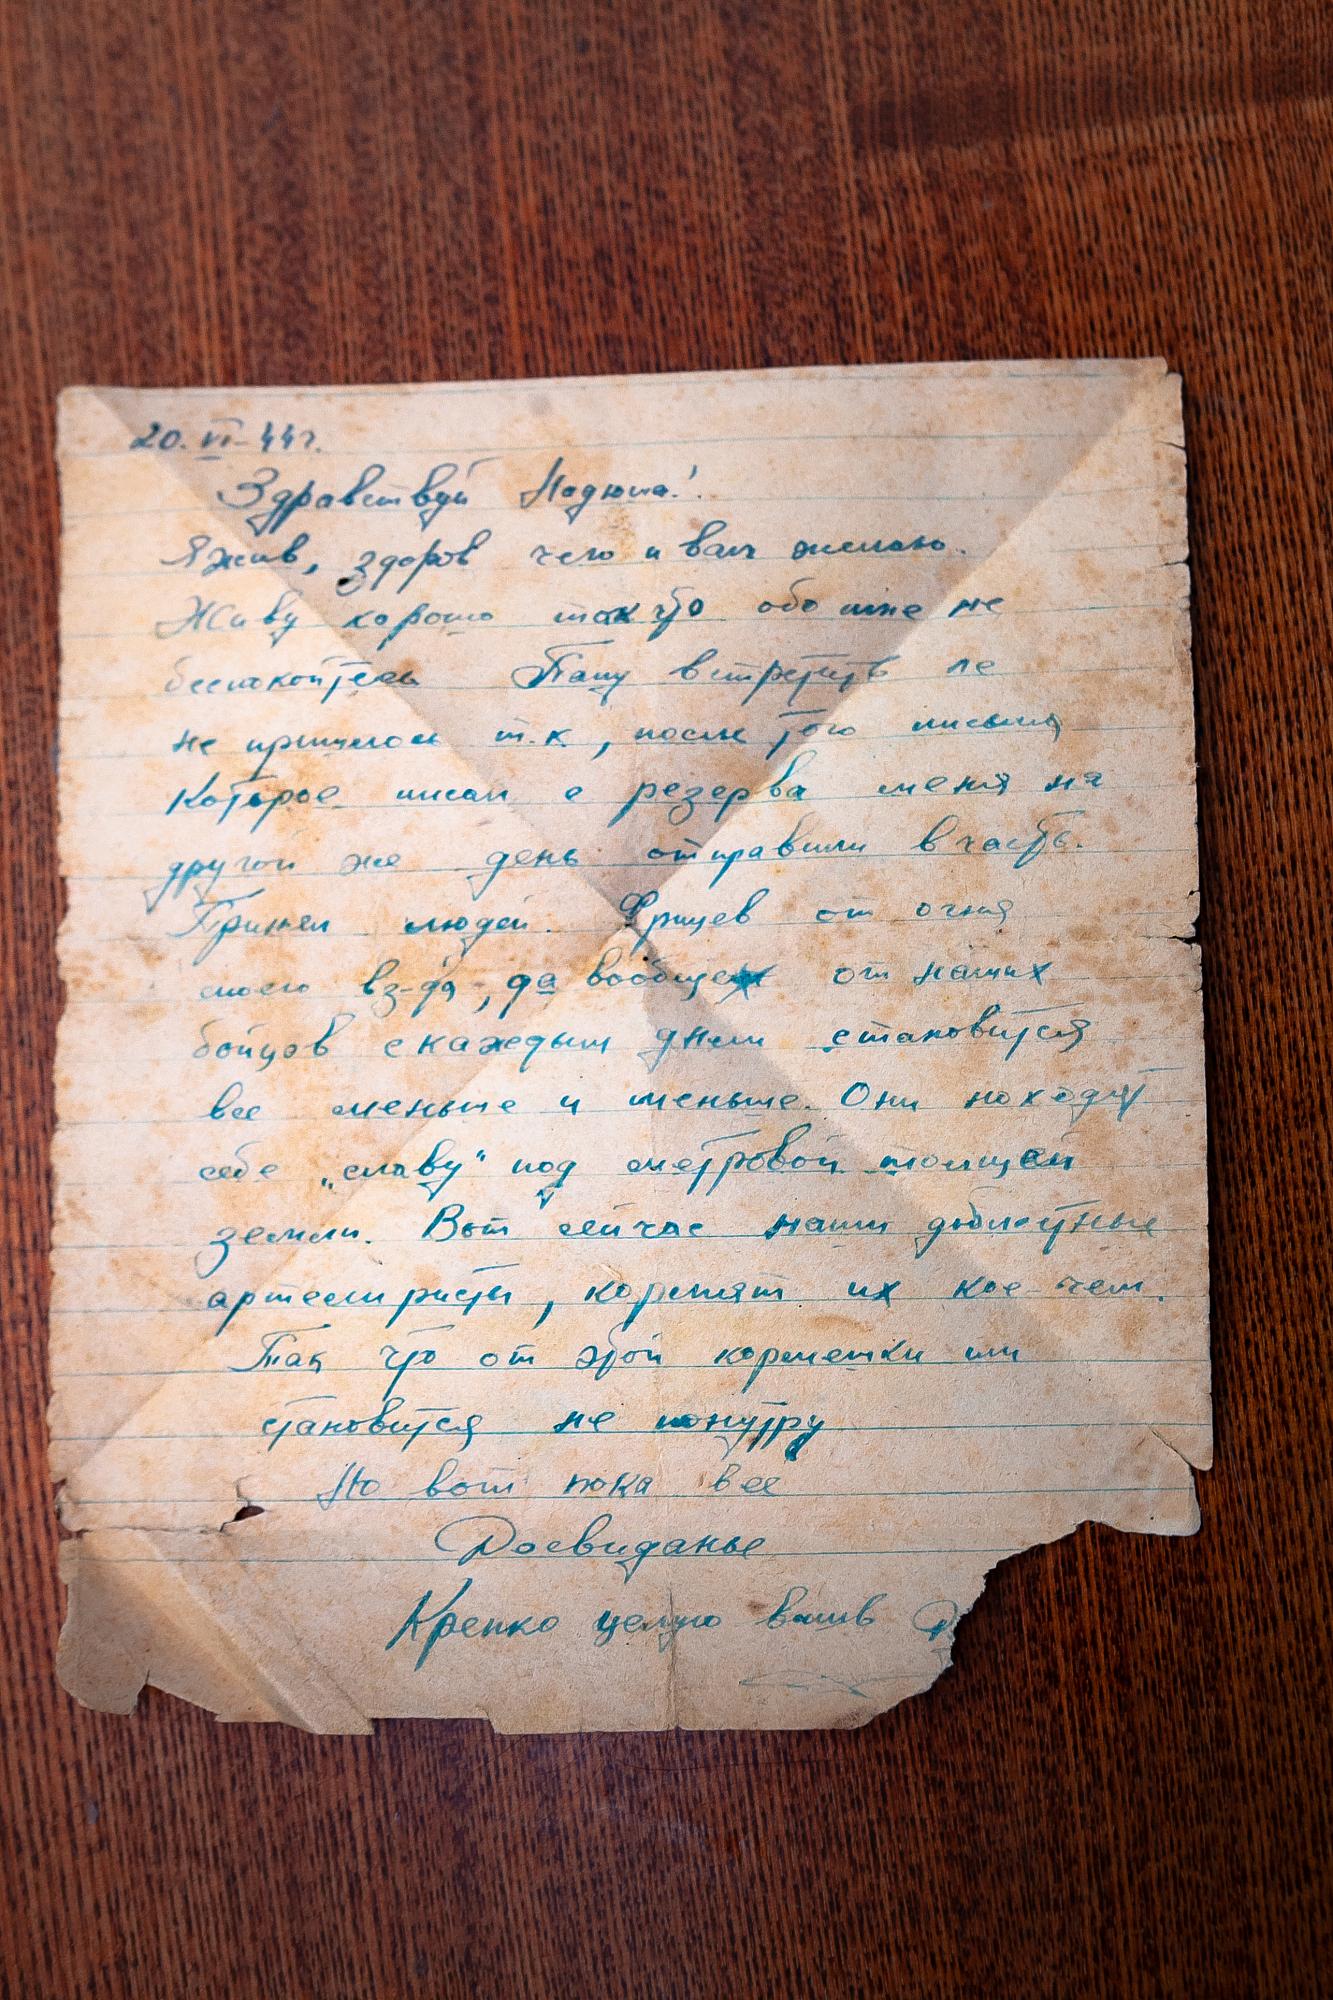 20. VI-44г.
Здравствуй Надюша!
Я жив, здоров чего и вам желаю.
Живу хорошо так что обо мне не
беспокойтесь Папу встретить
не пришлось т.к, после того письма
Которое писал с резерва меня на
другой же день отправили в часть.
Принял людей. Фрицев от огня
моего вз-да, да вообще от наших
бойцов с каждым днем становится
все меньше и меньше. Они находят
себе „славу“ под метровой толщей
земли. Вот сейчас наши доблестные
артелиристы, кормят их кое-чем.
Так что от этой кормежки им
становится не понутру
Но вот пока все
Досвиданье
Крепко целую ваш